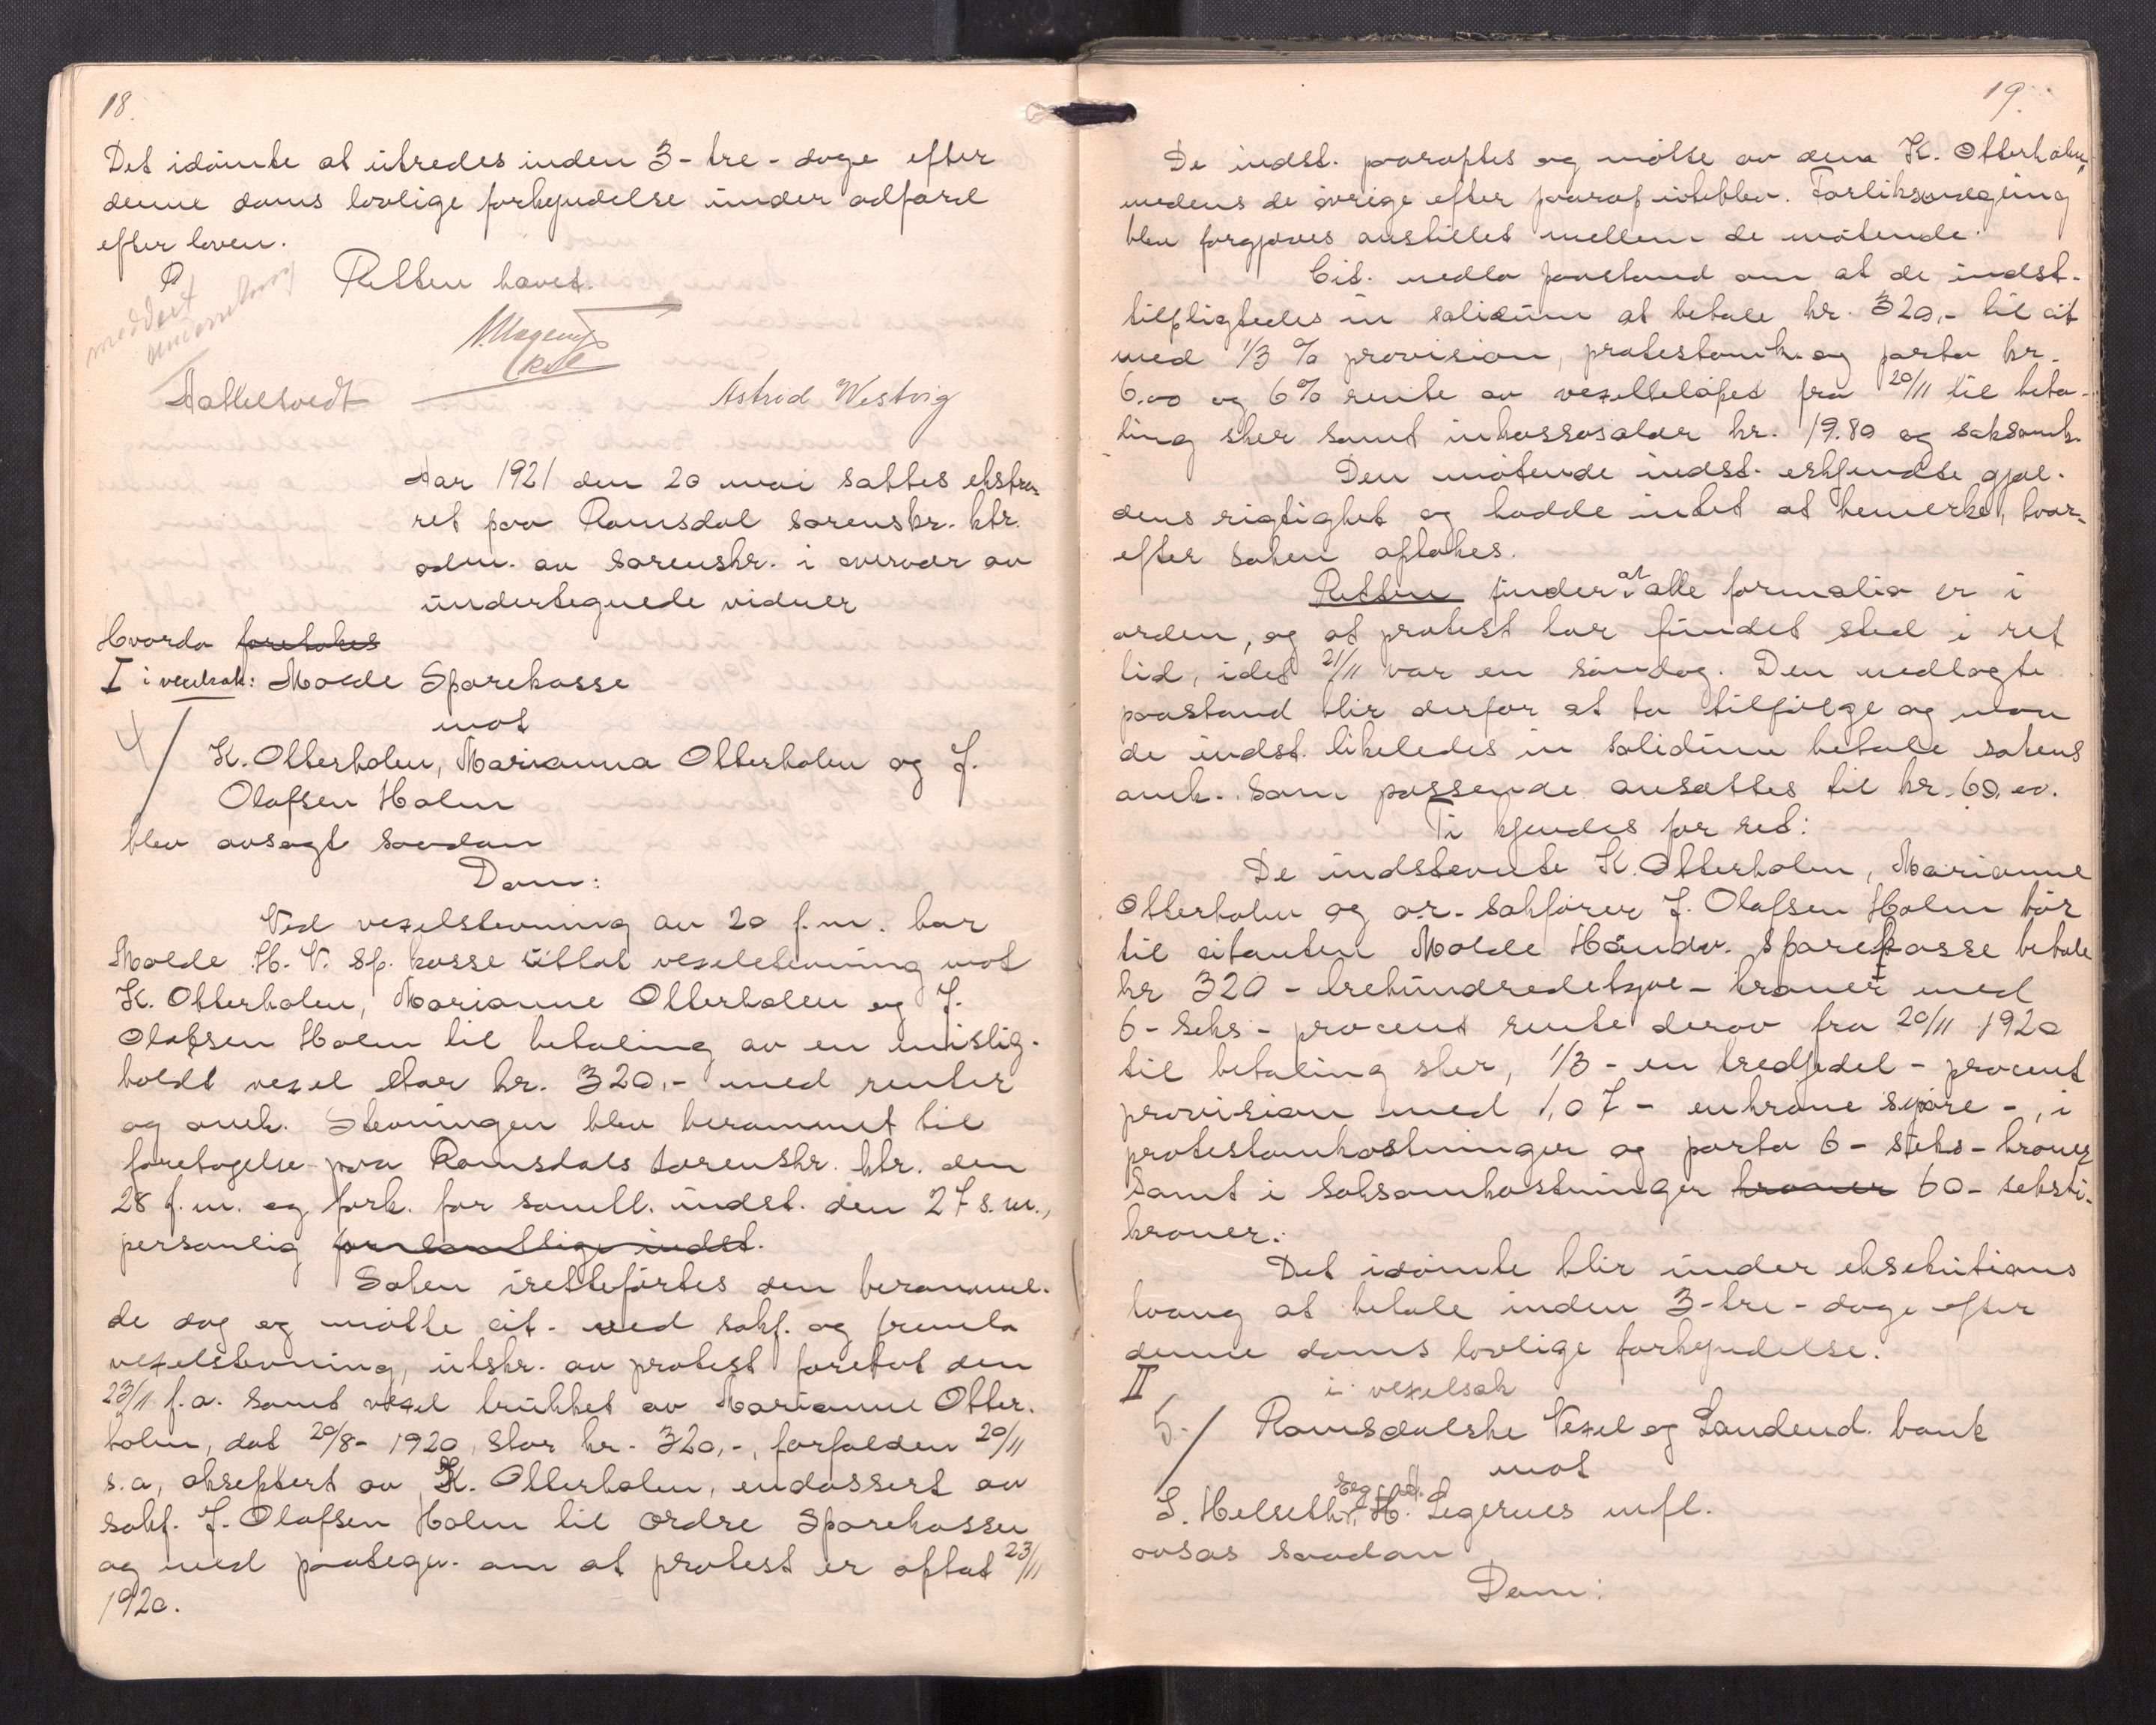 18.
Det idømte at utredes inden 3 - tre - dage efter
denne doms lovlige forkyndelse under adfærd
efter loven.
Retten hævet.
meddelt
Astrid Westvig
Aar 1921 den 20 mai sattes ekstra-
ret paa Romsdal sorenskr. ktr.
adm. av sorenskr. i overvær av
undertegnede vidner
Hvorda foretokes
I i vexelsak: Molde Sparekasse
mot
4/
K. Otterholm, Marianna Otterholm og J.
Olafsen Holm
blev avsagt saadan
Dom:
Ved vexelstevning av 20 f.m. har
Molde H. V. Sp. kasse uttat vexelstevning mot
K. Otterholm, Marianne Otterholm og J.
Olafsen Holm til betaling av en mislig-
holdt vexel stor kr. 320,- med renter
og omk. Stevningen blev berammet til
foretagelse paa Romsdals sorenskr. ktr. den
28 f.m. og fork. for samtl. indst. den 27 s.m.,
personlig for samtlige indst.
Saken irettеførtes den beramme-
de dag og møtte cit. ved sakf. og fremla
vexelstevning, utskr. av protest foretat den
23/11 f.a. samt vexel trukket av Marianne Otter-
holm, dat 20/8 - 1920, stor kr. 320,-, forfalden 20/11
s.a, akseptert av K. Otterholm, endossert av
sakf. J. Olafsen Holm til ordre Sparekassen
og med paategn. om at protest er optat 23/11
1920.
19.
De indst. paaroptes og møtte av dem K. Otterholm,
medens de øvrige efter paarop uteblev. Forliksmægling
blev forgjæves anstillet mellem de møtende.
Cit. nedla paastand om at de indst.
tilpligtedes in solidum at betale kr. 320,- til cit
med 1/3 % provision, protestomk. og porto kr.
6.00 og 6% rente av vexelbeløpet fra 20/11 til beta-
ling sker samt inkassosalær kr. 19.80 og saksomk.
Den møtende indst. erkjendte gjæl-
dens rigtighet og hadde intet at bemerke, hvor-
efter saken optokes.
Retten finder at alle formalia er i
orden, og at protest har fundet sted i ret
tid, idet 21/11 var en søndag. Den nedlagte
paastand blir derfor at ta tilfølge og maa
de indst. likeledes in solidum betale sakens
omk. som passende ansættes til kr. 60.00.
Ti kjendes for ret:
De indstevnte K. Otterholm, Marianne
Otterholm og o.r. sakfører J. Olafsen Holm bør
til citanten Molde Haandv. Sparekasse betale
kr 320 - trehundredetyve - kroner med
6 - seks - procent rente derav fra 20/11 1920
til betaling sker, 1/3 - en tredjedel - procent
provision med 1,07 - enkrone syvøre -, i
protestomkostninger og porto 6 - seks - kroner
samt i saksomkostninger kroner 60 - seksti-
kroner.
Det idømte blir under eksekutions
tvang at betale inden 3 - tre - dage efter
denne doms lovlige forkyndelse.
II
i vexelsak
5./
Romsdalske Vexel og Landmd. bank
mot
L. Helseth, H. Legernes mfl.
avsas saadan
Dom: